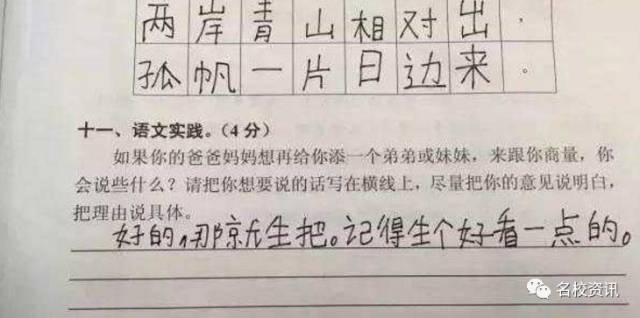 两岸青山相对出，
孤帆一片日边来。
十一、语文实践。（4分）
如果你的爸爸妈妈想再给你添一个弟弟或妹妹，来跟你商量，你
会说些什么？请把你想要说的话写在横线上，尽量把你的意见说明白，
把理由说具体。
好的，那就生把。记得生个好看一点的。
名校资讯